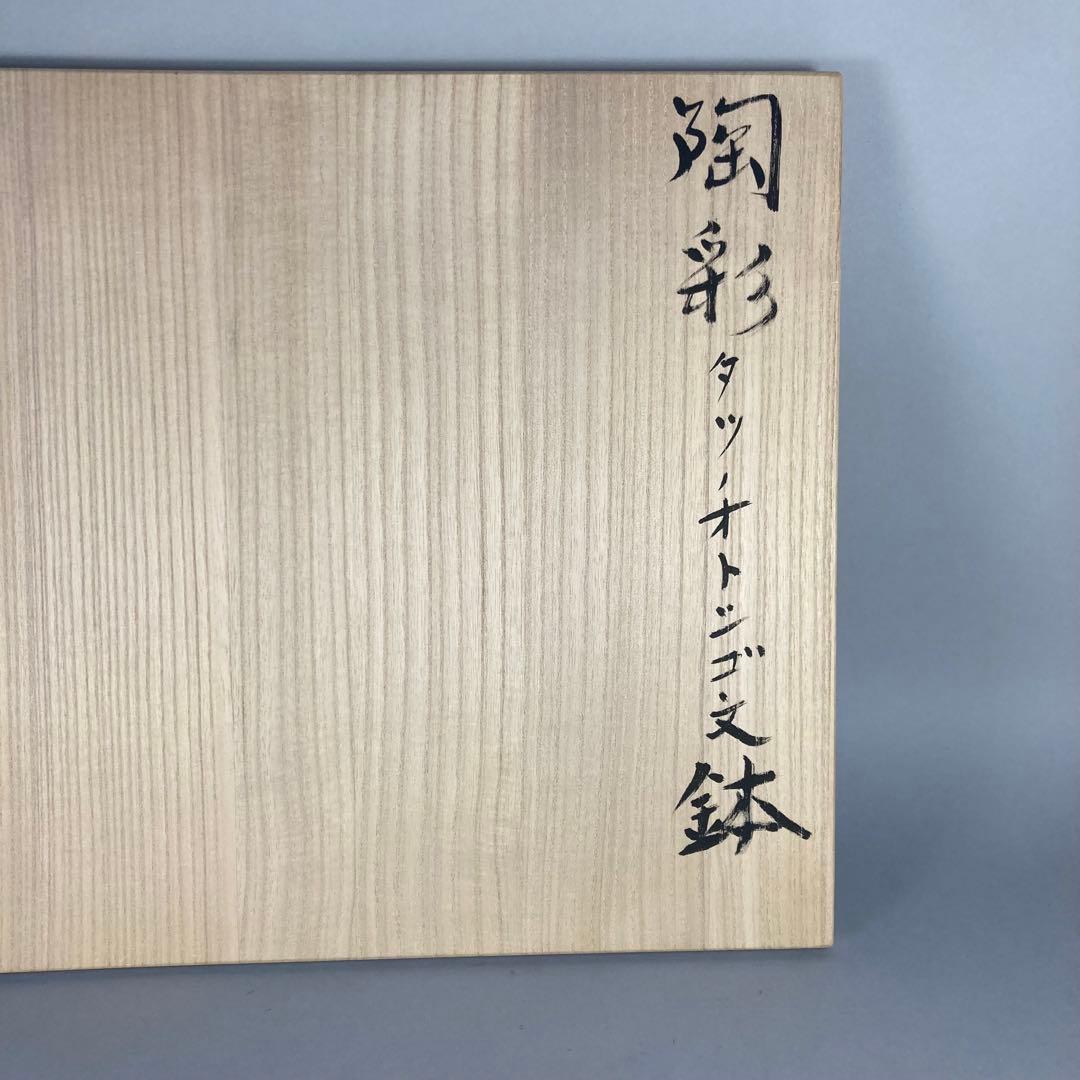 陶彩タツノオトシゴ文鉢